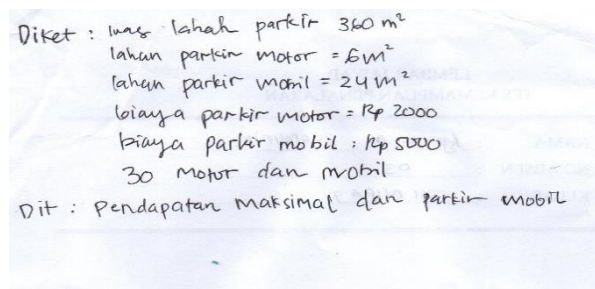 Diket : luas lahah parkir 360 m²
lahan parkir motor = 6m²
lahan parkir mobil = 24m²
biaya parkir motor = Rp 2000
biaya parkir mobil : Rp 5000
30 motor dan mobil
Dit : Pendapatan maksimal dan parkir mobil